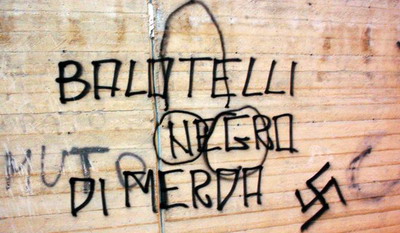 BALOTELLI
NEGRO
MUTO
DI MERDA